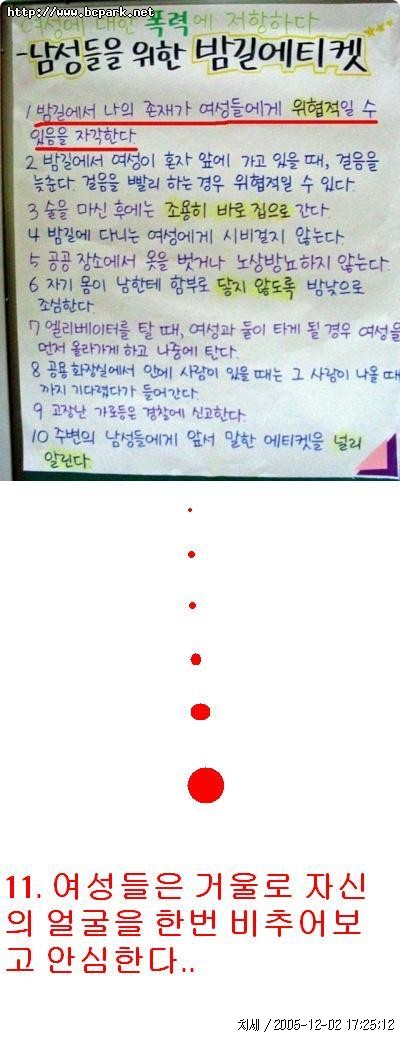 http://www.bcpark.net
여성에 대한 폭력에 저항하다
-남성들을 위한 밤길에티켓
1 밤길에서 나의 존재가 여성들에게 위협적일 수
있음을 자각한다.
2 밤길에서 여성이 혼자 앞에 가고 있을 때, 걸음을
늦춘다. 걸음을 빨리 하는 경우 위협적일 수 있다.
3 술을 마신 후에는 조용히 바로 집으로 간다.
4 밤길에 다니는 여성에게 시비걸지 않는다.
5 공공 장소에서 옷을 벗거나 노상방뇨하지 않는다.
6 자기 몸이 남한테 함부로 닿지 않도록 밤낮으로
조심한다.
7 엘리베이터를 탈 때, 여성과 둘이 타게 될 경우 여성을
먼저 올라가게 하고 나중에 탄다.
8 공용화장실에서 안에 사람이 있을 때는 그 사람이 나올 때
까지 기다렸다가 들어간다.
9 고장난 가로등은 경찰에 신고한다.
10 주변의 남성들에게 앞서 말한 에티켓을 널리
알린다.
11. 여성들은 거울로 자신
의 얼굴을 한번 비추어보
고 안심한다..
치세 / 2005-12-02 17:25:12